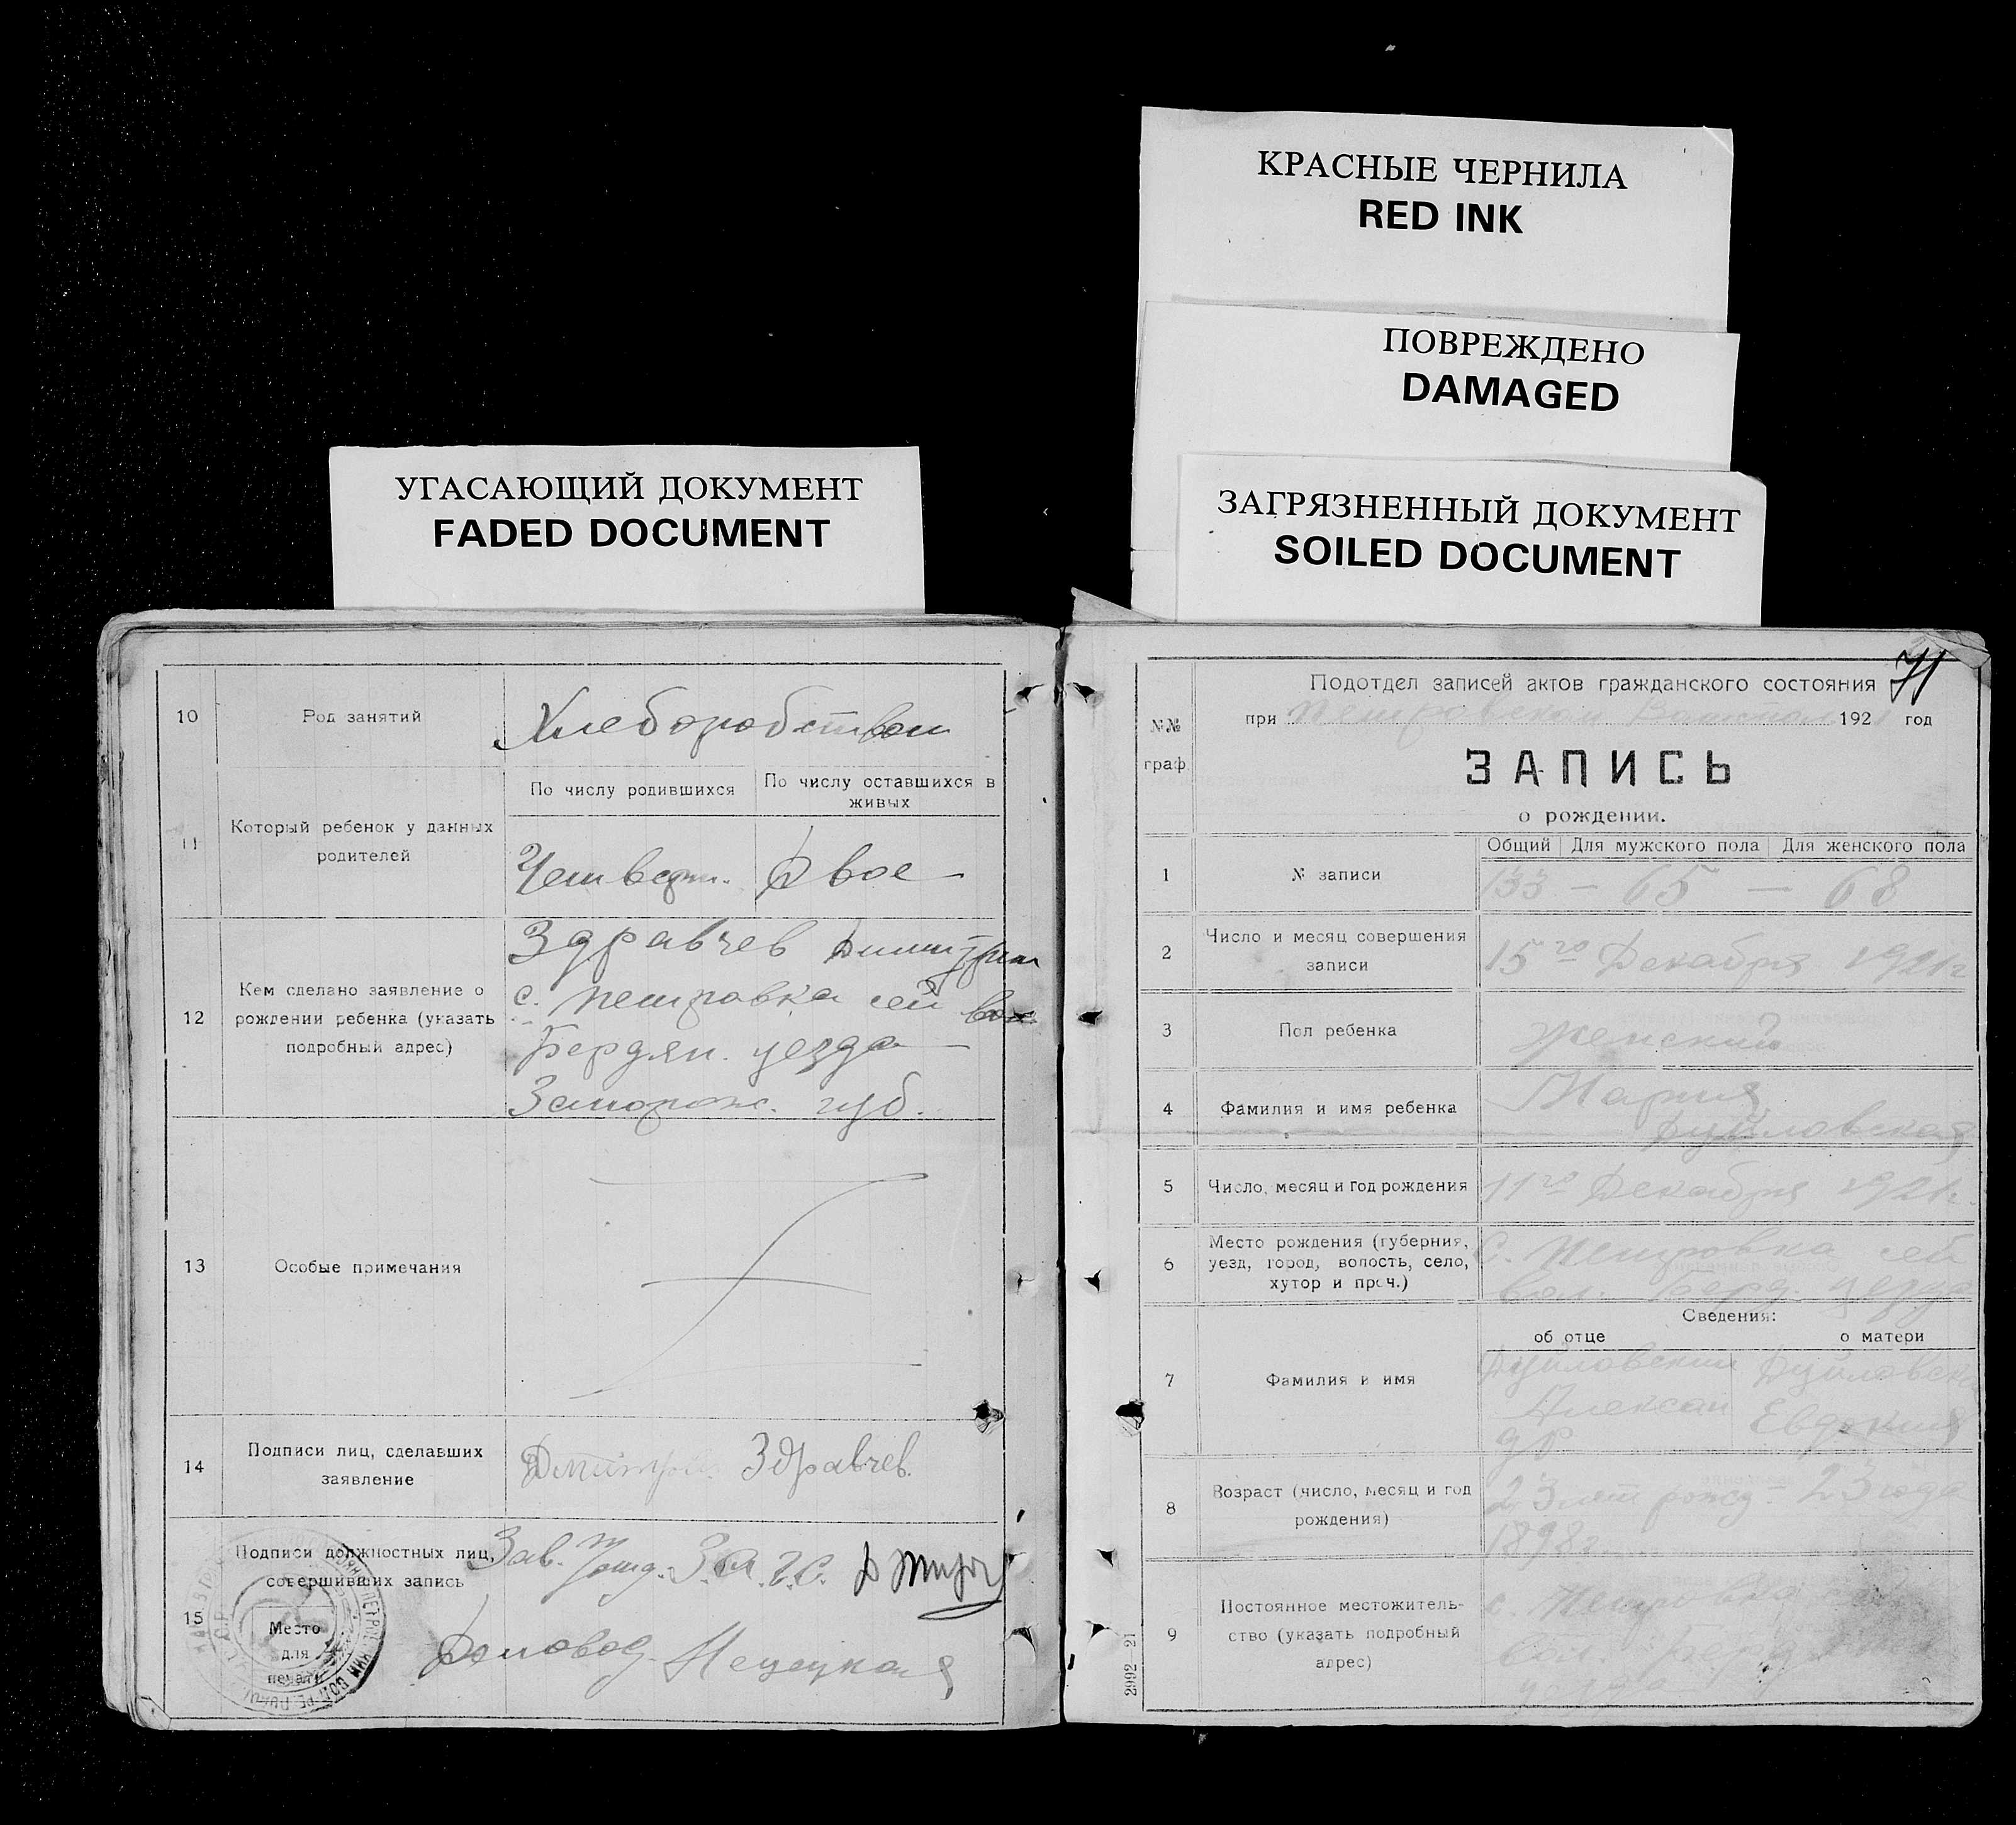 КРАСНЫЕ ЧЕРНИЛА
RED INK
ПОВРЕЖДЕНО
DAMAGED
ЗАГРЯЗНЕННЫЙ ДОКУМЕНТ
SOILED DOCUMENT
УГАСАЮЩИЙ ДОКУМЕНТ
FADED DOCUMENT
10
Род занятий
Хлеборобством
11
Который ребенок у данных
родителей
По числу родившихся
По числу оставшихся в
живых
Четверт.
Двое
12
Кем сделано заявление о
рождении ребенка (указать
подробный адрес)
Здравчев Дмитрий
с. Петровка сей вол.
Бердян. уезда
Запорож. губ.
13
Особые примечания
14
Подписи лиц, сделавших
заявление
Дмитрий Здравчев.
15
Подписи должностных лиц,
совершивших запись
Место
для
печати
Зав. З.А.Г.С.
Деловод.
71
№№
граф.
Подотдел записей актов гражданского состояния
при Петровском 192 год
ЗАПИСЬ
о рождении.
1
№ записи
Общий Для мужского пола Для женского пола
133 — 65 — 68
2
Число и месяц совершения
записи
15го Декабря 1921г
3
Пол ребенка
Женский
4
Фамилия и имя ребенка
Мария
Дуйловская
5
Число, месяц и год рождения
11го Декабря 1921г.
6
Место рождения (губерния,
уезд, город, волость, село,
хутор и проч.)
С. Петровка сей
вол. Берд. уезда
Сведения:
об отце
о матери
7
Фамилия и имя
Дуйловский
Александр
Дуйловская
Евдокия
8
Возраст (число, месяц и год
рождения)
23 лет рожд.
1898г.
23 года
9
Постоянное местожитель-
ство (указать подробный
адрес)
с. Петровка
вол.
уезда
2992 21